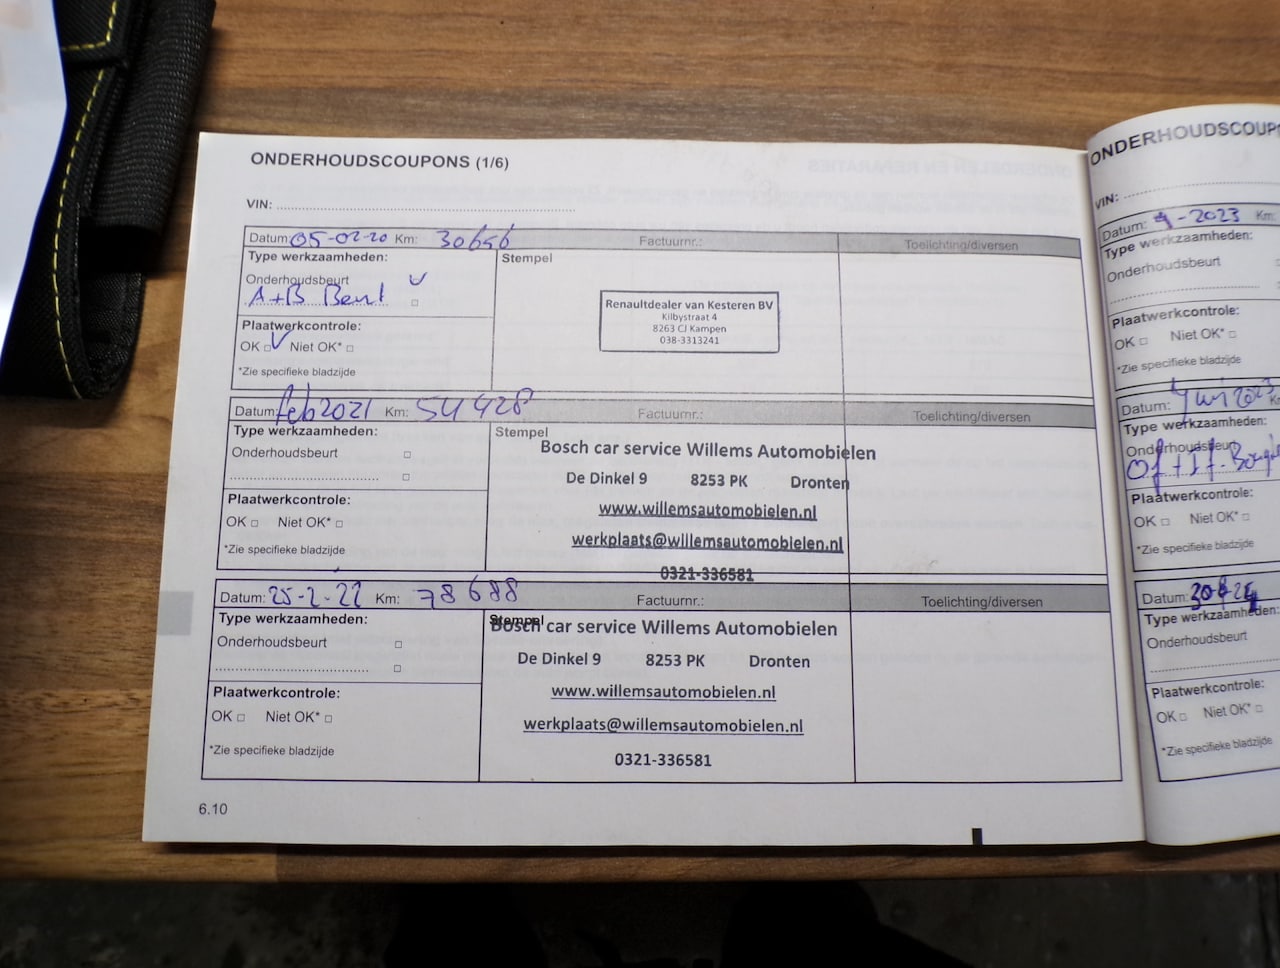 ONDERHOUDSCOUPONS (1/6)
VIN:
Datum: 05-02-20 Km: 30656 Factuurnr.: Toelichting/diversen
Type werkzaamheden:
Stempel
Onderhoudsbeurt
A+B Beurt
Plaatwerkcontrole:
OK Niet OK*
*Zie specifieke bladzijde
Renaultdealer van Kesteren BV
Kilbystraat 4
8263 CJ Kampen
038-3313241
Datum: feb 2021 Km: 54428 Factuurnr.: Toelichting/diversen
Type werkzaamheden:
Stempel
Onderhoudsbeurt
Plaatwerkcontrole:
OK Niet OK*
*Zie specifieke bladzijde
Bosch car service Willems Automobielen
De Dinkel 9 8253 PK Dronten
www.willemsautomobielen.nl
werkplaats@willemsautomobielen.nl
0321-336581
Datum: 25-2-22 Km: 78688 Factuurnr.: Toelichting/diversen
Type werkzaamheden:
Stempel
Onderhoudsbeurt
Plaatwerkcontrole:
OK Niet OK*
*Zie specifieke bladzijde
Bosch car service Willems Automobielen
De Dinkel 9 8253 PK Dronten
www.willemsautomobielen.nl
werkplaats@willemsautomobielen.nl
0321-336581
6.10
VIN:
Datum: -2023 Km:
Type werkzaamheden:
Onderhoudsbeurt
Plaatwerkcontrole:
OK Niet OK*
*Zie specifieke bladzijde
Datum: 2023
Type werkzaamheden:
Onderhoudsbeurt
Plaatwerkcontrole:
OK Niet OK*
*Zie specifieke bladzijde
Datum:
Type werkzaamheden:
Onderhoudsbeurt
Plaatwerkcontrole:
OK Niet OK*
*Zie specifieke bladzijde